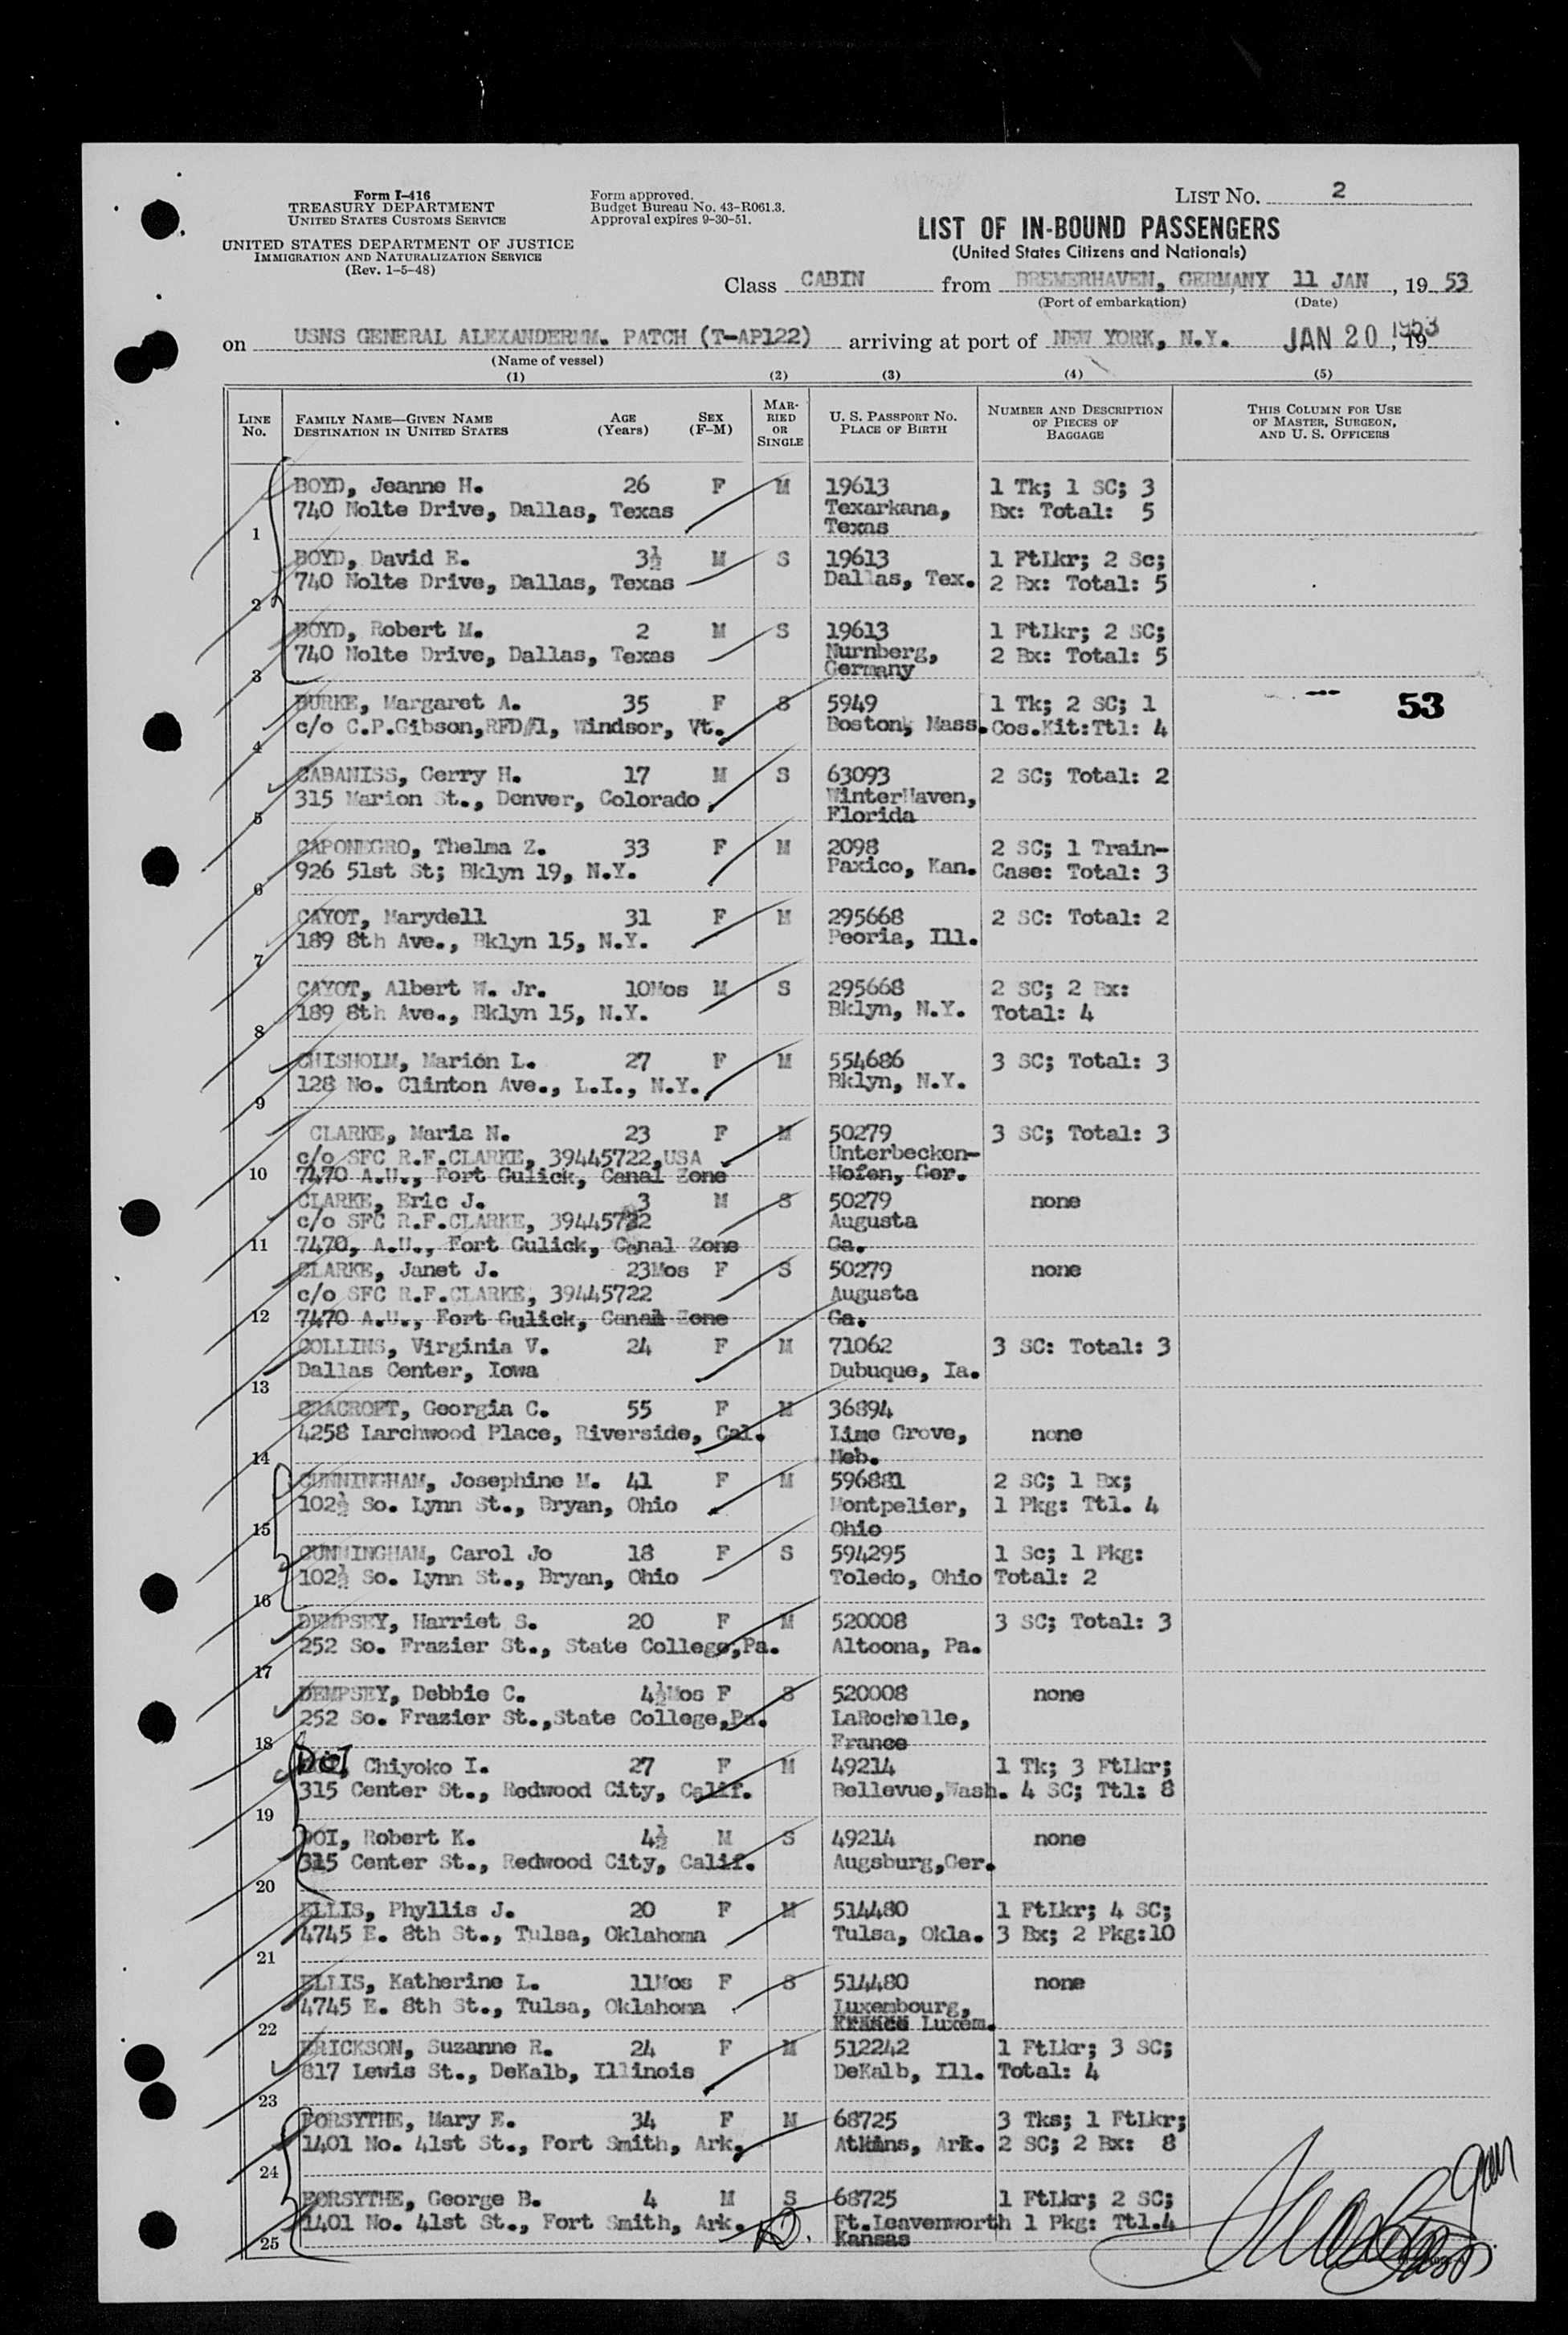 Form I-416
TREASURY DEPARTMENT
UNITED STATES CUSTOMS SERVICE
UNITED STATES DEPARTMENT OF JUSTICE
IMMIGRATION AND NATURALIZATION SERVICE
(Rev. 1-5-48)
Form approved.
Budget Bureau No. 43-R061.3.
Approval expires 9-30-51.
LIST NO. 2
LIST OF IN-BOUND PASSENGERS
(United States Citizens and Nationals)
Class CABIN from BREMERHAVEN, GERMANY 11 JAN, 19 53
(Port of embarkation) (Date)
on USNS GENERAL ALEXANDERMM. PATCH (T-AP122) arriving at port of NEW YORK, N.Y. JAN 20 1953, 19
(Name of vessel)
(1) (2) (3) (4) (5)
LINE No. FAMILY NAME—GIVEN NAME DESTINATION IN UNITED STATES AGE (Years) SEX (F-M) MARRIED OR SINGLE U. S. PASSPORT NO. PLACE OF BIRTH NUMBER AND DESCRIPTION OF PIECES OF BAGGAGE THIS COLUMN FOR USE OF MASTER, SURGEON, AND U. S. OFFICERS
BOYD, Jeanne H. 26 F M 19613 1 Tk; 1 SC; 3
740 Nolte Drive, Dallas, Texas Texarkana, Bx: Total: 5
1 Texas
BOYD, David E. 3½ M S 19613 1 FtLkr; 2 Sc;
740 Nolte Drive, Dallas, Texas Dallas, Tex. 2 Bx: Total: 5
2
BOYD, Robert M. 2 M S 19613 1 FtLkr; 2 SC;
740 Nolte Drive, Dallas, Texas Nurnberg, 2 Bx: Total: 5
3 Germany
BURKE, Margaret A. 35 F S 5949 1 Tk; 2 SC; 1 --- 53
c/o C.P.Gibson,RFD#1, Windsor, Vt. Boston, Mass. Cos.Kit:Ttl: 4
4
CABANISS, Gerry H. 17 M S 63093 2 SC; Total: 2
315 Marion St., Denver, Colorado WinterHaven,
5 Florida
CAPONEGRO, Thelma Z. 33 F M 2098 2 SC; 1 Train-
926 51st St; Bklyn 19, N.Y. Paxico, Kan. Case: Total: 3
6
CAYOT, Marydell 31 F M 295668 2 SC: Total: 2
189 8th Ave., Bklyn 15, N.Y. Peoria, Ill.
7
CAYOT, Albert W. Jr. 10Mos M S 295668 2 SC; 2 Bx:
189 8th Ave., Bklyn 15, N.Y. Bklyn, N.Y. Total: 4
8
CHISHOLM, Marion L. 27 F M 554686 3 SC; Total: 3
128 No. Clinton Ave., L.I., N.Y. Bklyn, N.Y.
9
CLARKE, Maria N. 23 F M 50279 3 SC; Total: 3
c/o SFC R.F.CLARKE, 39445722,USA Unterbecken-
10 7470 A.U., Fort Gulick, Canal Zone Hofen, Ger.
CLARKE, Eric J. 3 M S 50279 none
c/o SFC R.F.CLARKE, 39445722 Augusta
11 7470, A.U., Fort Gulick, Canal Zone Ga.
CLARKE, Janet J. 23Mos F S 50279 none
c/o SFC R.F.CLARKE, 39445722 Augusta
12 7470 A.U., Fort Gulick, Canal Zone Ga.
COLLINS, Virginia V. 24 F M 71062 3 SC: Total: 3
Dallas Center, Iowa Dubuque, Ia.
13
CRACROFT, Georgia C. 55 F M 36894
4258 Larchwood Place, Riverside, Cal. Lime Grove, none
14 Neb.
CUNNINGHAM, Josephine M. 41 F M 596881 2 SC; 1 Bx;
102½ So. Lynn St., Bryan, Ohio Montpelier, 1 Pkg: Ttl. 4
15 Ohio
CUNNINGHAM, Carol Jo 18 F S 594295 1 Sc; 1 Pkg:
102½ So. Lynn St., Bryan, Ohio Toledo, Ohio Total: 2
16
DEMPSEY, Harriet S. 20 F M 520008 3 SC; Total: 3
252 So. Frazier St., State College,Pa. Altoona, Pa.
17
DEMPSEY, Debbie C. 4½Mos F S 520008 none
252 So. Frazier St.,State College,Pa. LaRochelle,
18 France
DOI, Chiyoko I. 27 F M 49214 1 Tk; 3 FtLkr;
315 Center St., Redwood City, Calif. Bellevue,Wash. 4 SC; Ttl: 8
19
DOI, Robert K. 4½ M S 49214 none
315 Center St., Redwood City, Calif. Augsburg,Ger.
20
ELLIS, Phyllis J. 20 F M 514480 1 FtLkr; 4 SC;
4745 E. 8th St., Tulsa, Oklahoma Tulsa, Okla. 3 Bx; 2 Pkg:10
21
ELLIS, Katherine L. 11Mos F S 514480 none
4745 E. 8th St., Tulsa, Oklahoma Luxembourg,
22 France Luxem.
ERICKSON, Suzanne R. 24 F M 512242 1 FtLkr; 3 SC;
817 Lewis St., DeKalb, Illinois DeKalb, Ill. Total: 4
23
FORSYTHE, Mary E. 34 F M 68725 3 Tks; 1 FtLkr;
1401 No. 41st St., Fort Smith, Ark. Atkins, Ark. 2 SC; 2 Bx: 8
24
FORSYTHE, George B. 4 M S 68725 1 FtLkr; 2 SC;
1401 No. 41st St., Fort Smith, Ark. Ft.Leavenworth 1 Pkg: Ttl.4
25 Kansas